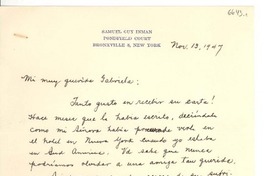 6643-1
SAMUEL GUY INMAN
PONDFIELD COURT
BRONXVILLE 8, NEW YORK
Nov. 13, 1947
Mi muy querida Gabriela:
Tanto gusto en recibir su carta!
Hace meses que le había escrito, diciéndole
como mi señora había visto en
el hotel en Nueva York cuando yo estaba
en Sud America. Ya sabe que nunca
podríamos olvidar a una amiga tan querida.